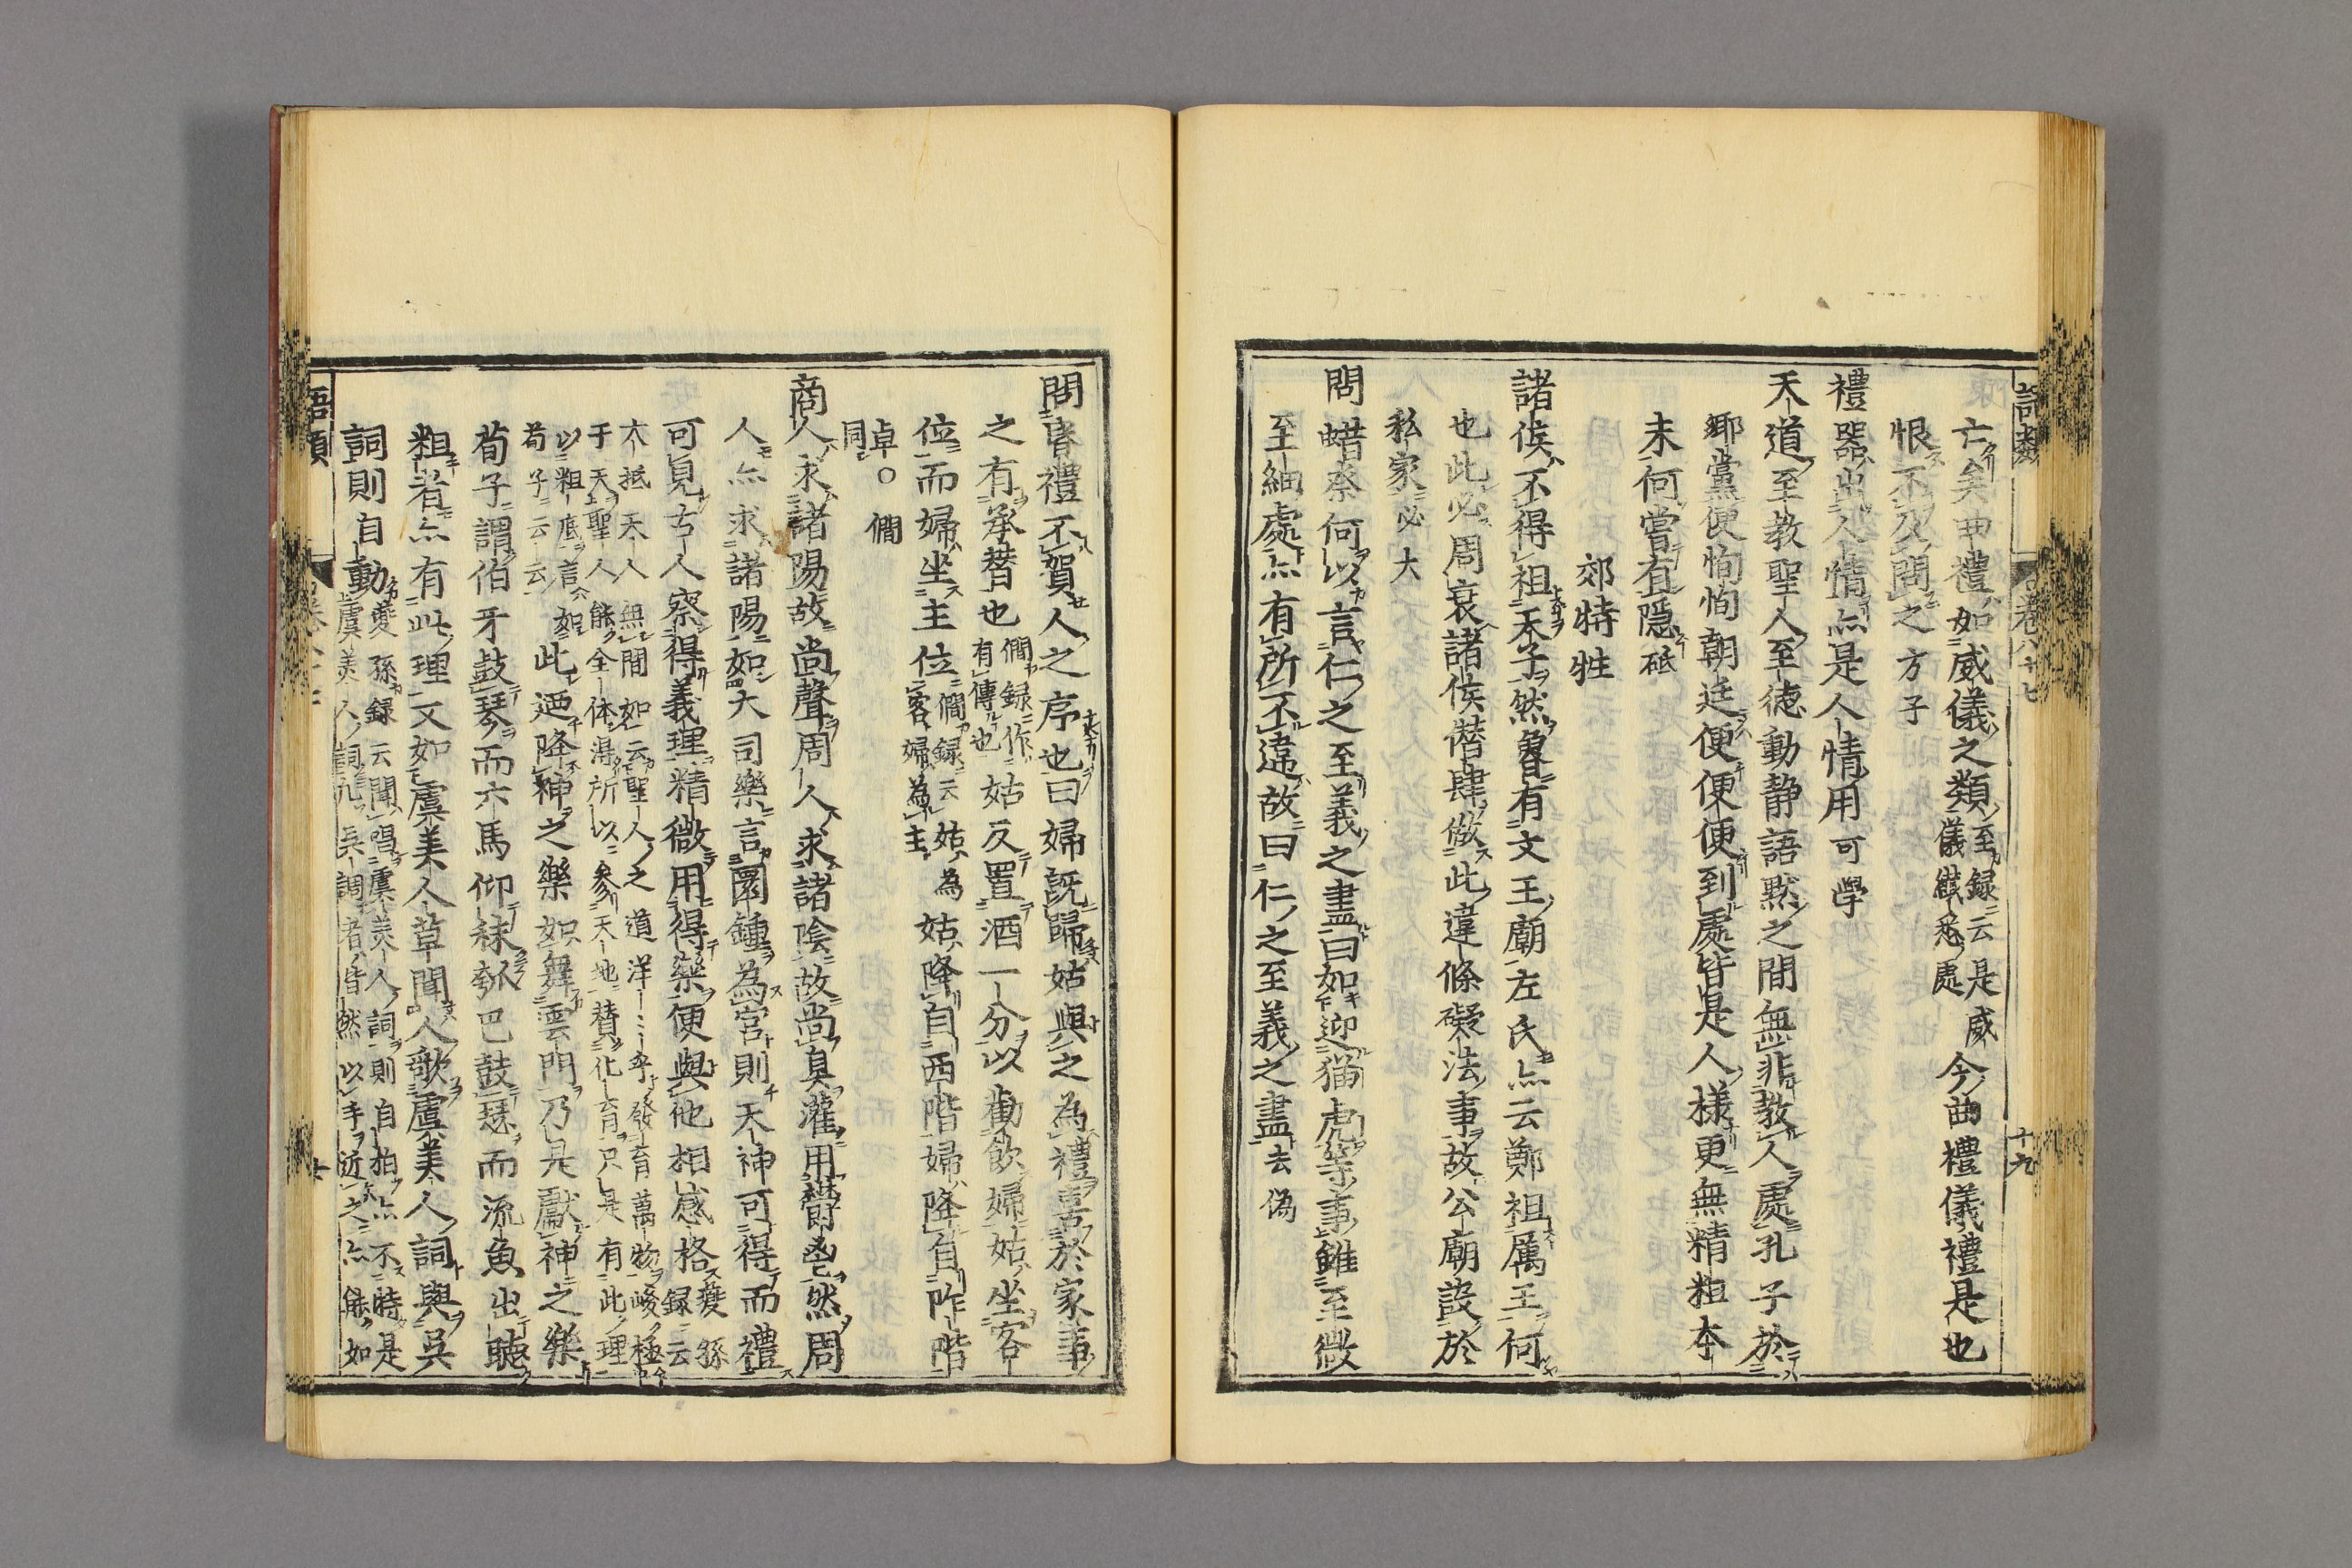 語類
卷八十七
十九
亡矣曲禮如威儀之類至録云是威儀纎悉處今曲禮儀禮是也
恨不及問之方子
禮器出人情亦是人情用可學
天道至教聖人至德動静語默之間無非教人處孔子於
郷黨便恂恂朝廷便便便到處皆是人様更無精粗本
末何嘗有隠砥
郊特牲
諸侯不得祖天子然魯有文王廟左氏亦云鄭祖厲王何
也此必周衰諸侯僭肆做此違條礙法事故公廟設於
私家必大
問蜡祭何以言仁之至義之盡曰如迎猫虎等事雖至微
至細處亦有所不違故曰仁之至義之盡去偽
問昏禮不賀人之序也曰婦既歸姑與之為禮喜於家事
之有承替也僩録作有傳也姑反置酒一分以勸飲婦姑坐客
位而婦坐主位僩録云姑為客婦為主姑降自西階婦降自阼階
卓○僩同
商人求諸陽故尚聲周人求諸陰故尚臭灌用鬱鬯然周
人亦求諸陽如大司樂言圜鍾為宮則天神可得而禮
可見古人察得義理精微用得樂便與他相感格夔孫録云
大抵天人無間如云聖人之道洋洋乎發育萬物峻極
于天聖人能全体得所以參天地贊化育只是有此理
以粗底言如荀子云云此迺降神之樂如舞雲門乃是獻神之樂
荀子謂伯牙鼓琴而六馬仰秣瓠巴鼓瑟而流魚出聽
粗者亦有此理又如虞美人草聞人歌虞美人詞與吳
詞則自動夔孫録云聞唱虞美人詞則自拍亦不特是虞美人詞凡吳調者皆然以手近之亦能如
語類